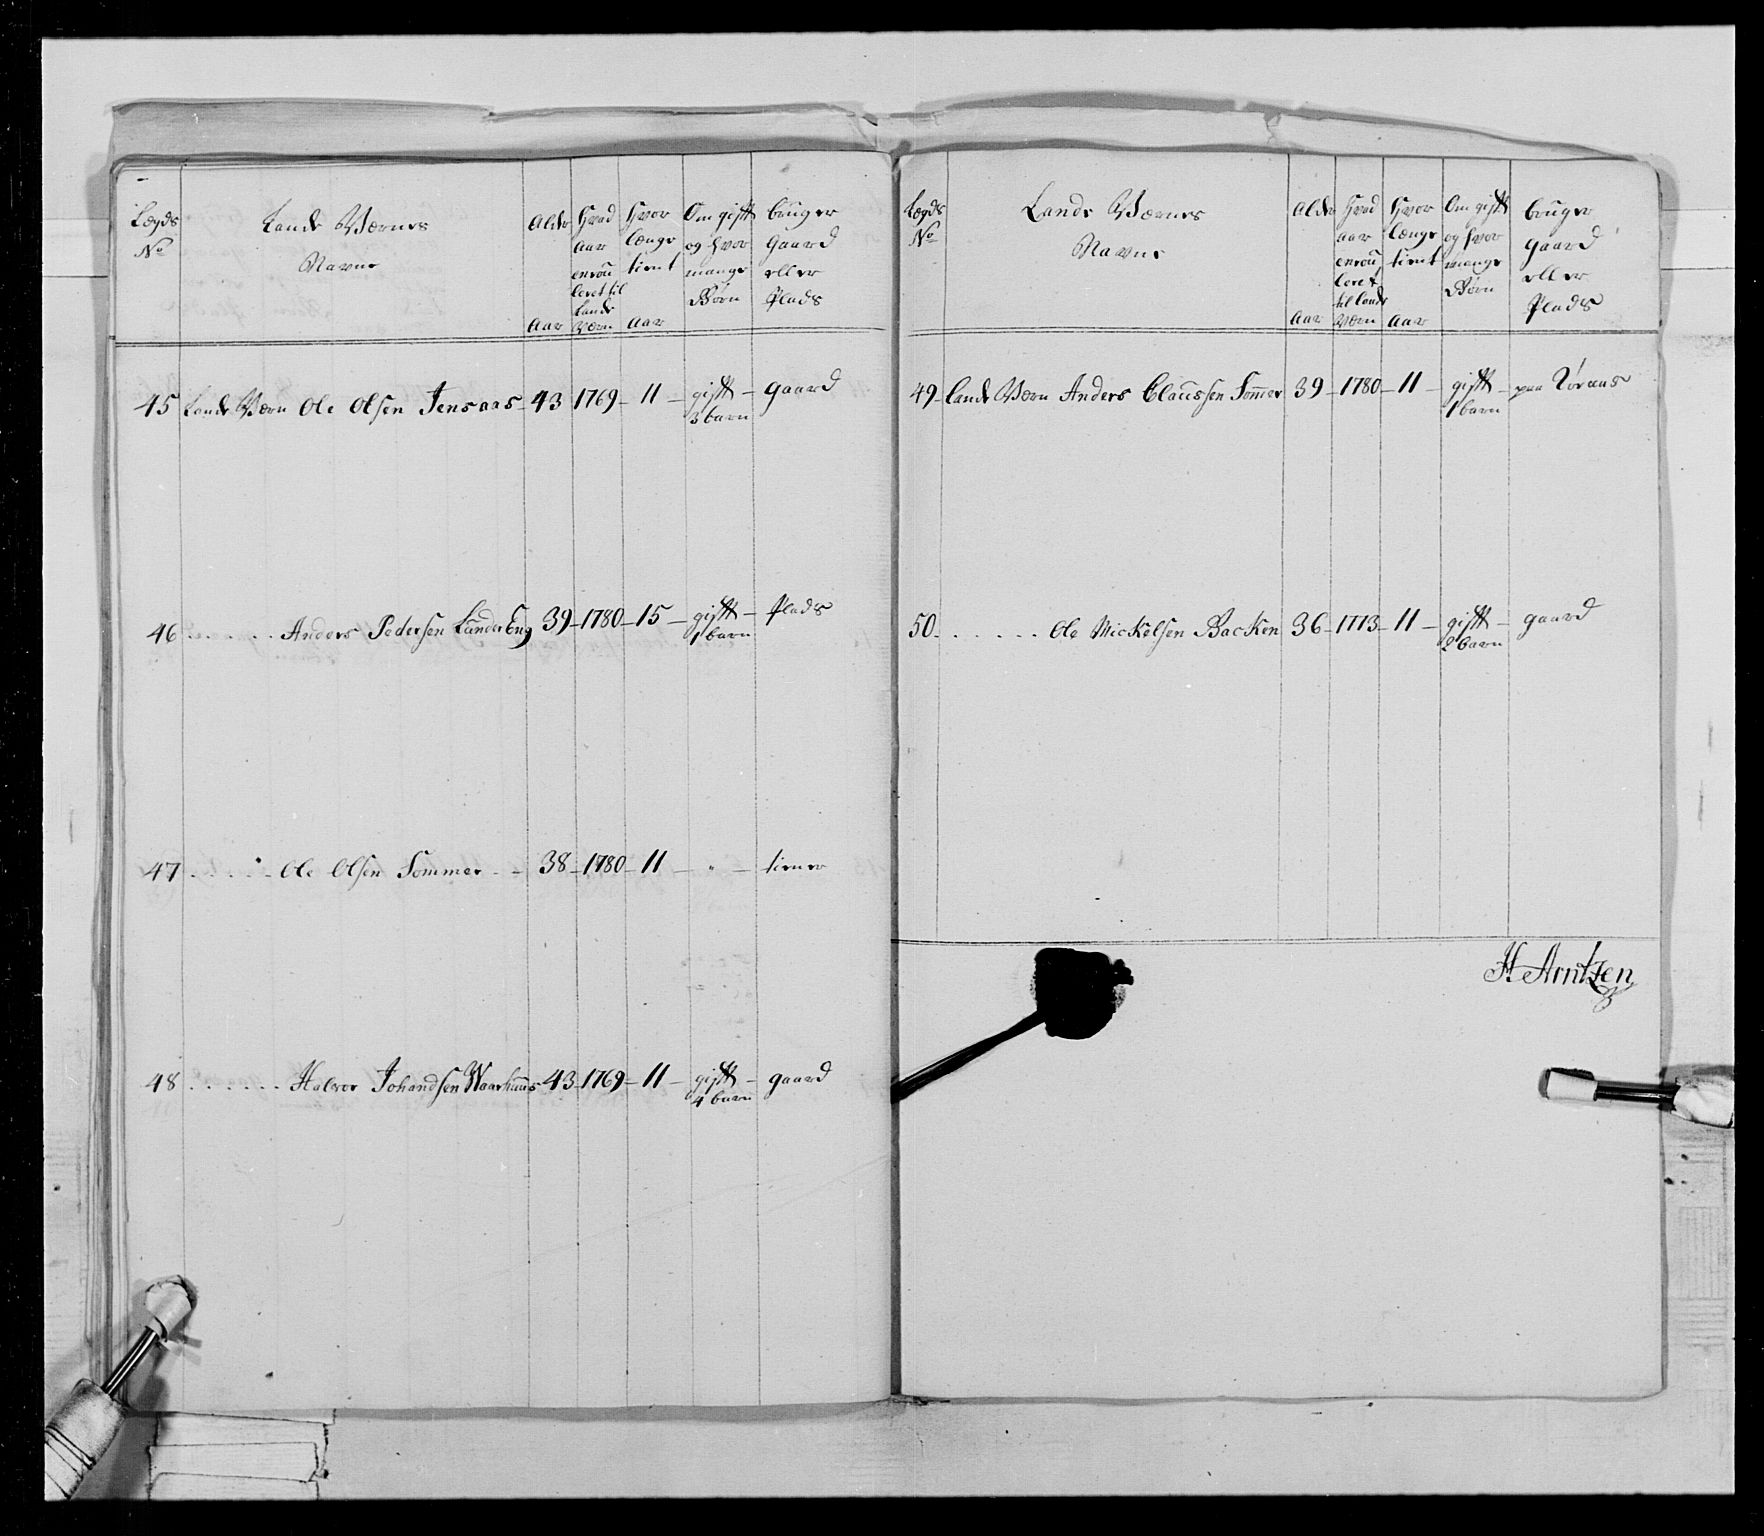 Lægds
No
Lands Værnes
Navne
Alder
Aar
Hvad
Aar
enrou
leret til
Lands
Værn
Hvor
længe
tient
Aar
Om gift
og hvor
mange
Børn
bruger
gaard
eller
Plads
45 Lands Værn Ole Olsen Jensaas 43 1769 11 gift gaard
3 barn
46 Anders Pedersen LunderEng 39 1780 15 gift Plads
1 barn
47 Ole Olsen Sommer 38 1780 11 " tiener
48 Halvor Johandsen Waarhuus 43 1769 11 gift gaard
4 barn
Lægds
No
Lands Værnes
Navne
Alder
Aar
Hvad
Aar
enrou
leret
til Lands
Værn
Hvor
længe
tient
Aar
Om gift
og hvor
mange
Børn
bruger
gaard
eller
Plads
49 Lands Værn Anders Claussen Sommer 39 1780 11 gift paa Røraas
1 barn
50 Ole Mickelsen Backen 36 1773 11 gift gaard
2 barn
H Arntzen